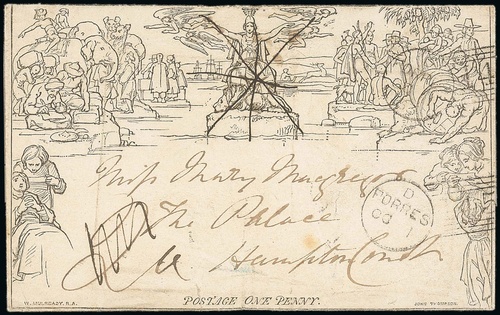 Miss Mary Macgregor
The Palace
Hampton Court
D
PORRES
OC 1
W. MULREADY, R.A.
POSTAGE ONE PENNY.
JOHN THOMPSON